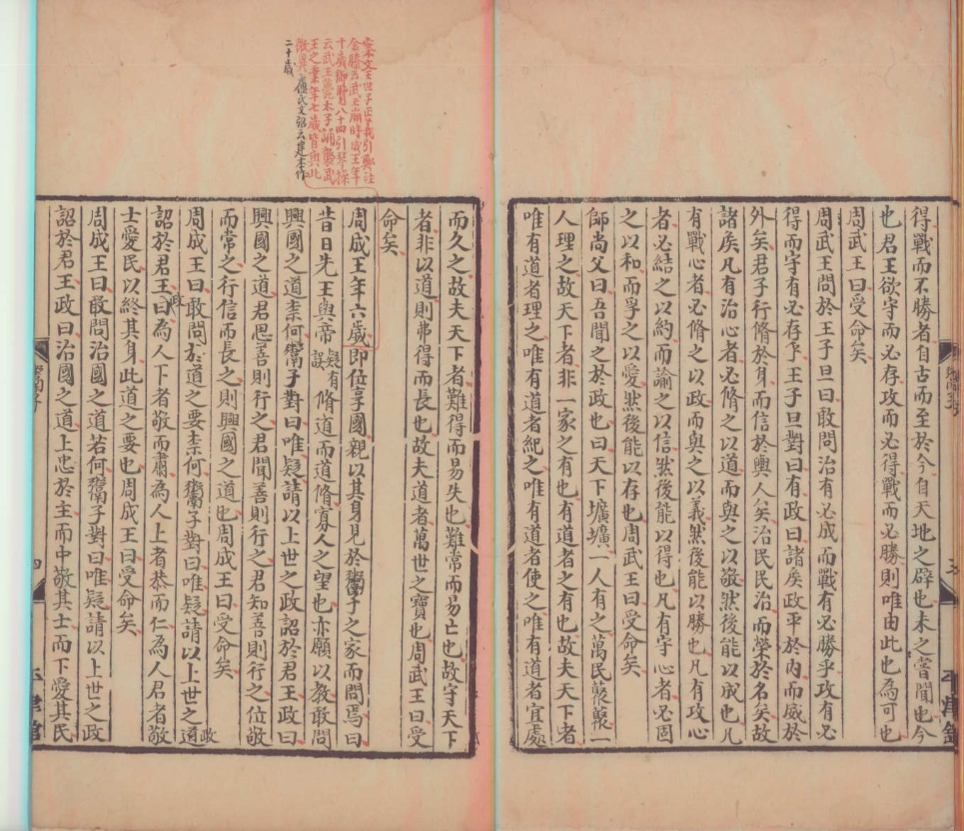 得戰而不勝者自古而至於今自天地之辟也未之嘗聞也今
也君王欲守而必存攻而必得戰而必勝則唯由此也為可也
周武王曰受命矣
周武王問於王子旦曰敢問治有必成而戰有必勝乎攻有必
得而守有必存乎王子旦對曰有政曰諸矦政平於內而威於
外矣君子行脩於身而信於輿人矣治民民治而榮於名矣故
諸矦凡有治心者必脩之以道而與之以敬然後能以成也凡
有戰心者必脩之以政而與之以義然後能以勝也凡有攻心
者必結之以約而諭之以信然後能以得也凡有守心者必固
之以和而孚之以愛然後能以存也周武王曰受命矣
師尚父曰吾聞之於政也曰天下壙壙一人有之萬民藂藂一
人理之故天下者非一家之有也有道者之有也故夫天下者
唯有道者理之唯有道者紀之唯有道者使之唯有道者宜處
而久之故夫天下者難得而易失也難常而易亡也故守天下
者非以道則弗得而長也故夫道者萬世之寶也周武王曰受
命矣
案文王世子正義引鄭注
金縢云武王崩時成王年
十歲御覽八十四引琴操
云武王薨太子誦襲武
王之業年七歲皆與此
微異 盧氏文弨云建本作
二十歲
周成王年六歲即位享國親以其身見於鬻子之家而問焉曰
昔日先王與帝疑有誤脩道而道脩寡人之望也亦願以教敢問
興國之道柰何鬻子對曰唯疑請以上世之政詔於君王政曰
興國之道君思善則行之君聞善則行之君知善則行之位敬
而常之行信而長之則興國之道也周成王曰受命矣
周成王曰敢問於道之要柰何鬻子對曰唯疑請以上世之道政
詔於君王政曰為人下者敬而肅為人上者恭而仁為人君者敬
士愛民以終其身此道之要也周成王曰受命矣
周成王曰敢問治國之道若何鬻子對曰唯疑請以上世之政
詔於君王政曰治國之道上忠於主而中敬其士而下愛其民
鬻子
四
平津館